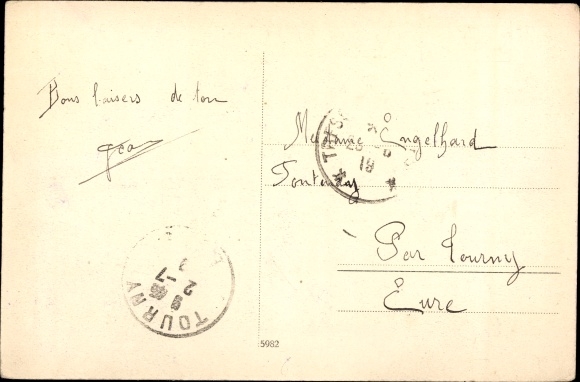 Bons baisers de ton
Géo
Madame Engelhard
Fontenay
Par Tourny
Eure
TOURNY
2-7
5982